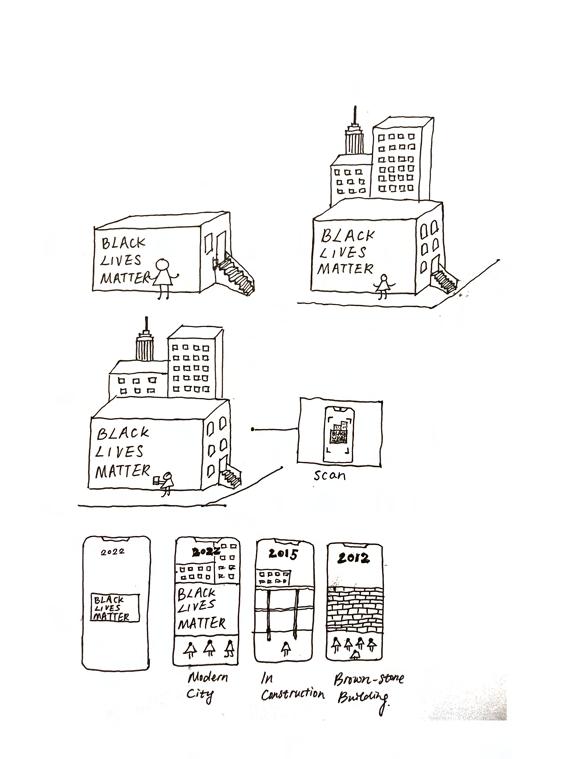 BLACK
LIVES
MATTER
BLACK
LIVES
MATTER
BLACK
LIVES
MATTER
scan
2022
BLACK
LIVES
MATTER
2022
BLACK
LIVES
MATTER
2015
2012
Modern
City
In
Construction
Brown-stone
Building.